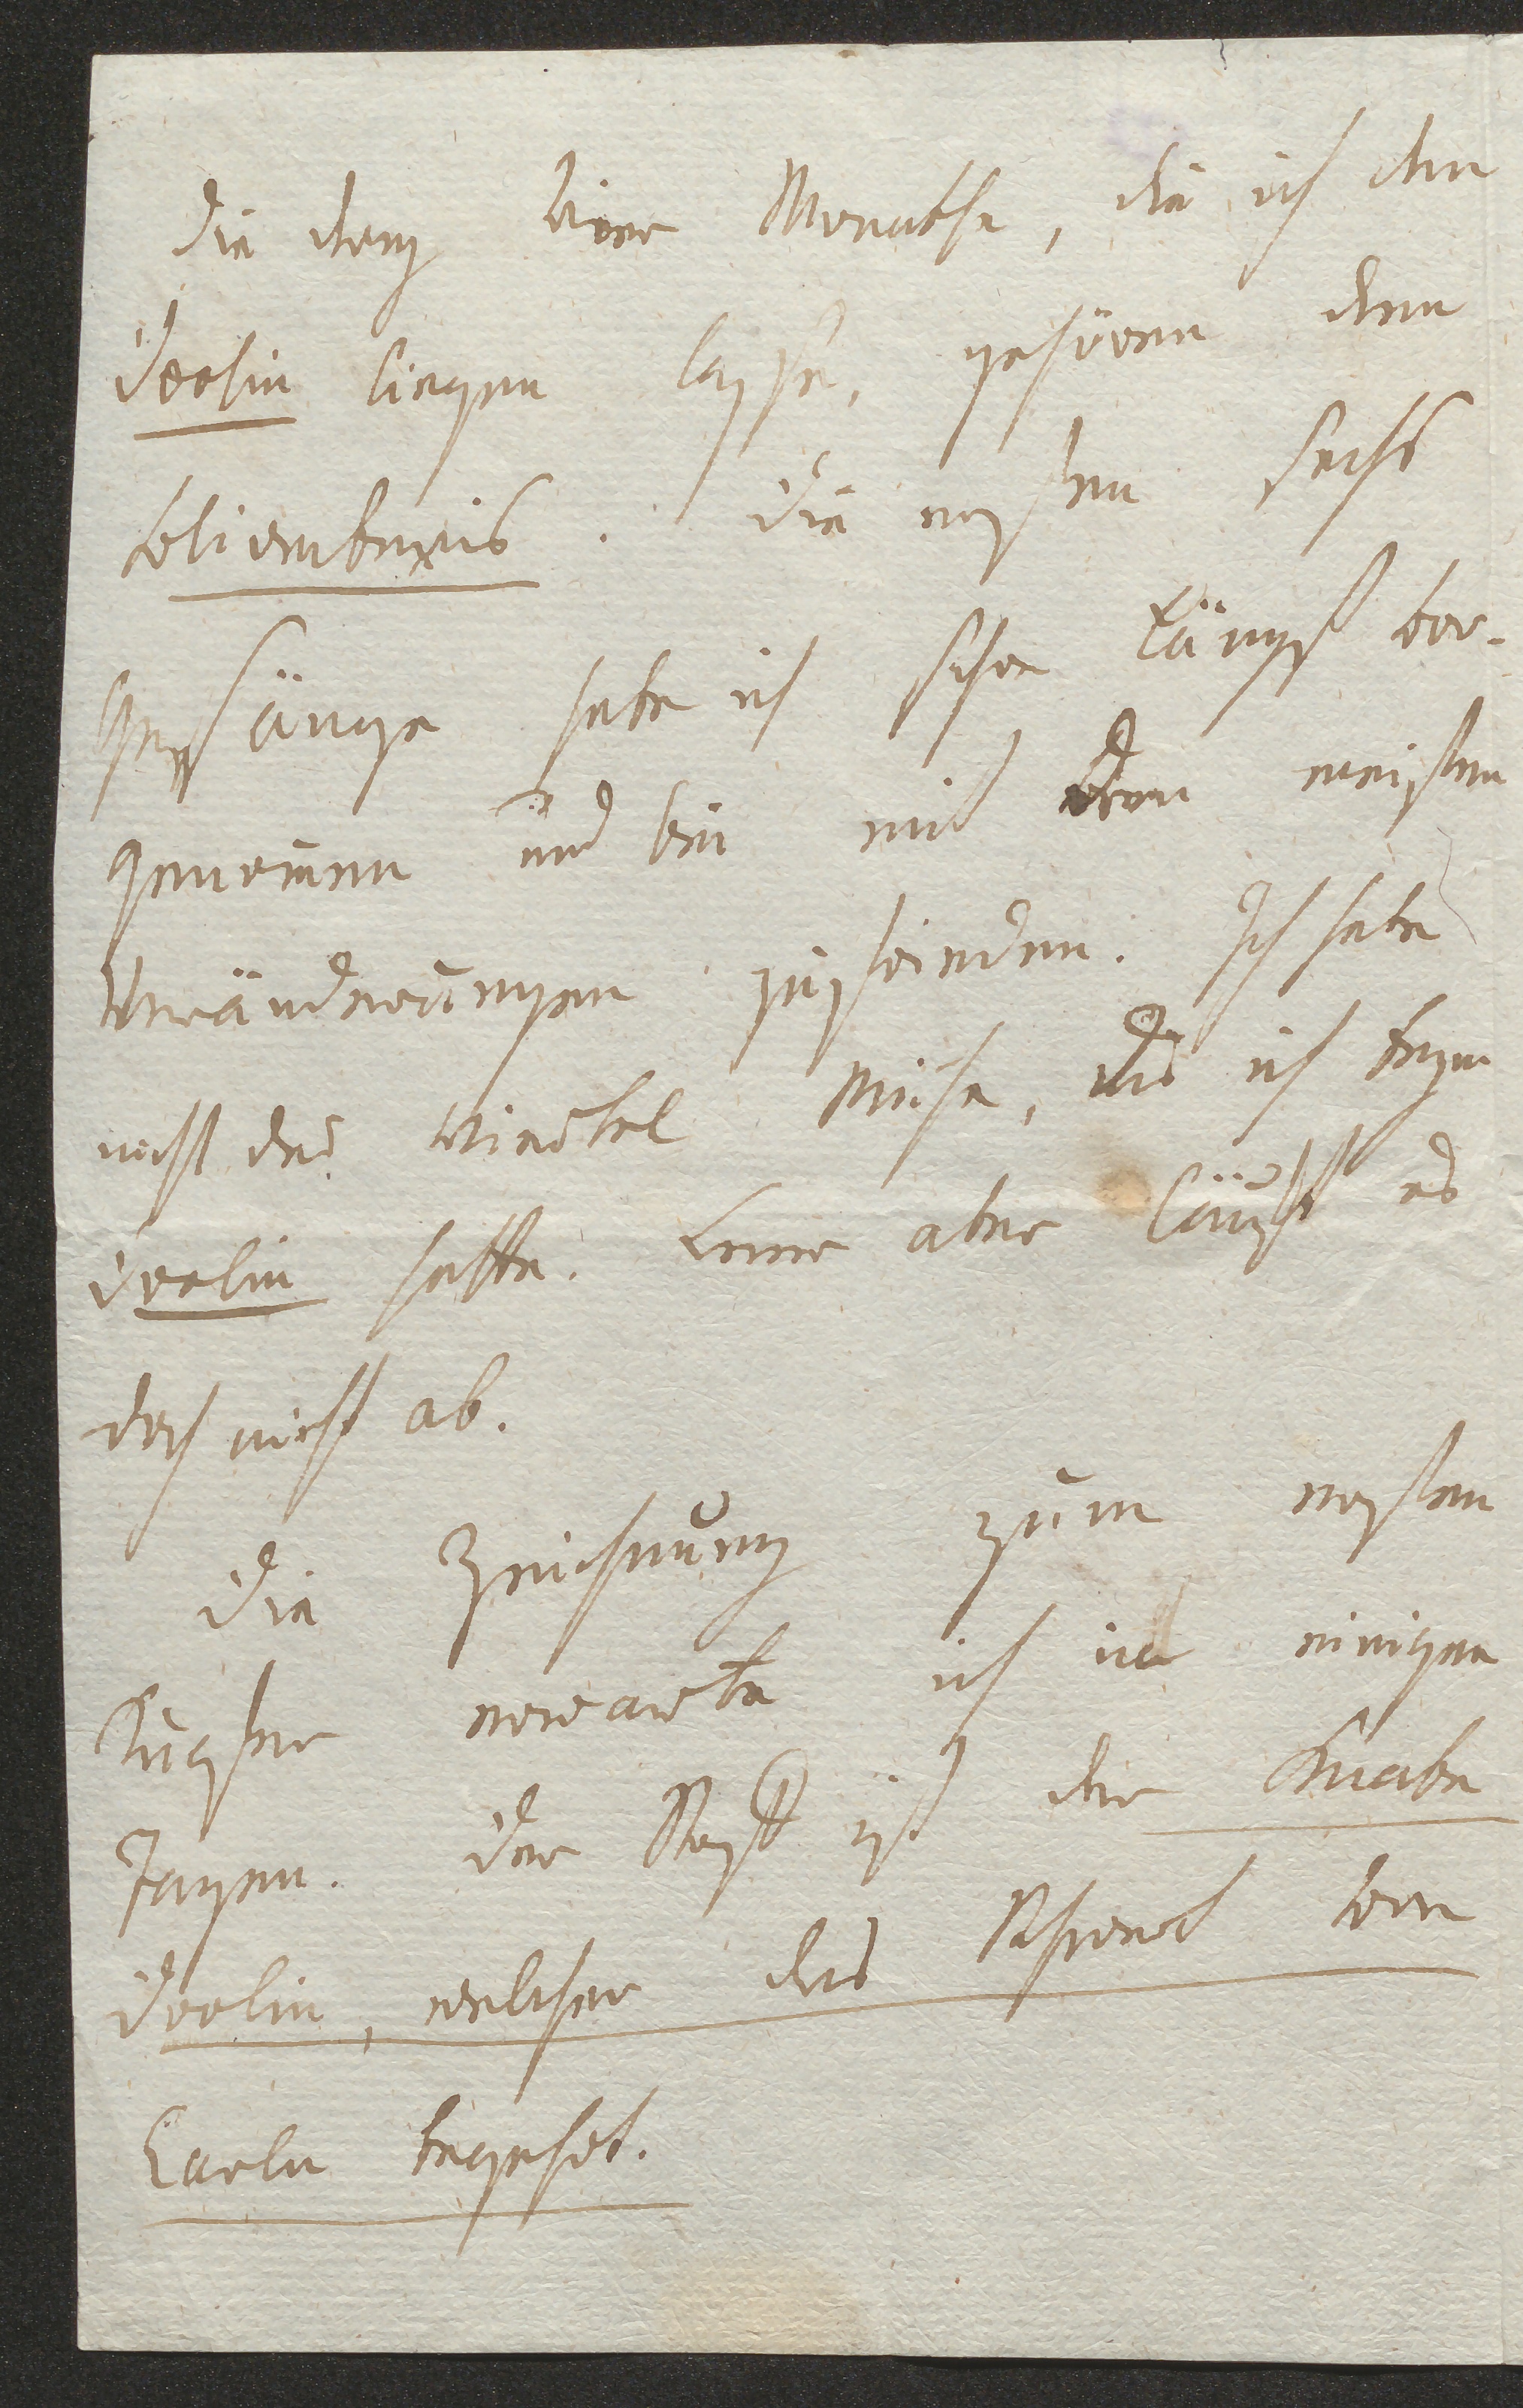 Die drey vier Monathe, die ich den
Doolin liegen lasse, gehören dem
Bliomberis. Die ersten sechs
Gesänge habe ich schon längst vor-
genomen und bin mit den meisten
Veränderungen zufrieden. Ich habe
nicht das Viertel Mühe, das ich beym
Doolin hatte. Leer aber läuft es
doch nicht ab.
Die Zeichnung zum ersten
Kupfer erwarte ich in einigen
Tagen. Der Stoff ist der Knabe
Doolin, welcher das Schwert von
Carln begehrt.